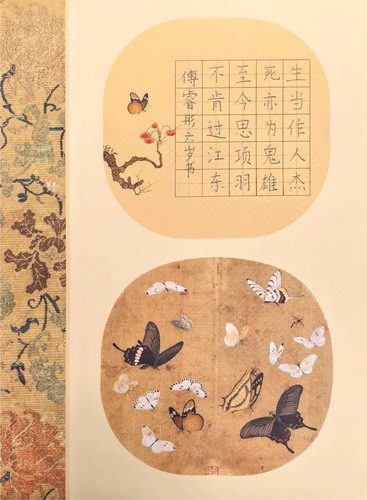 生当作人杰
死亦为鬼雄
至今思项羽
不肯过江东
傅睿彤六岁书